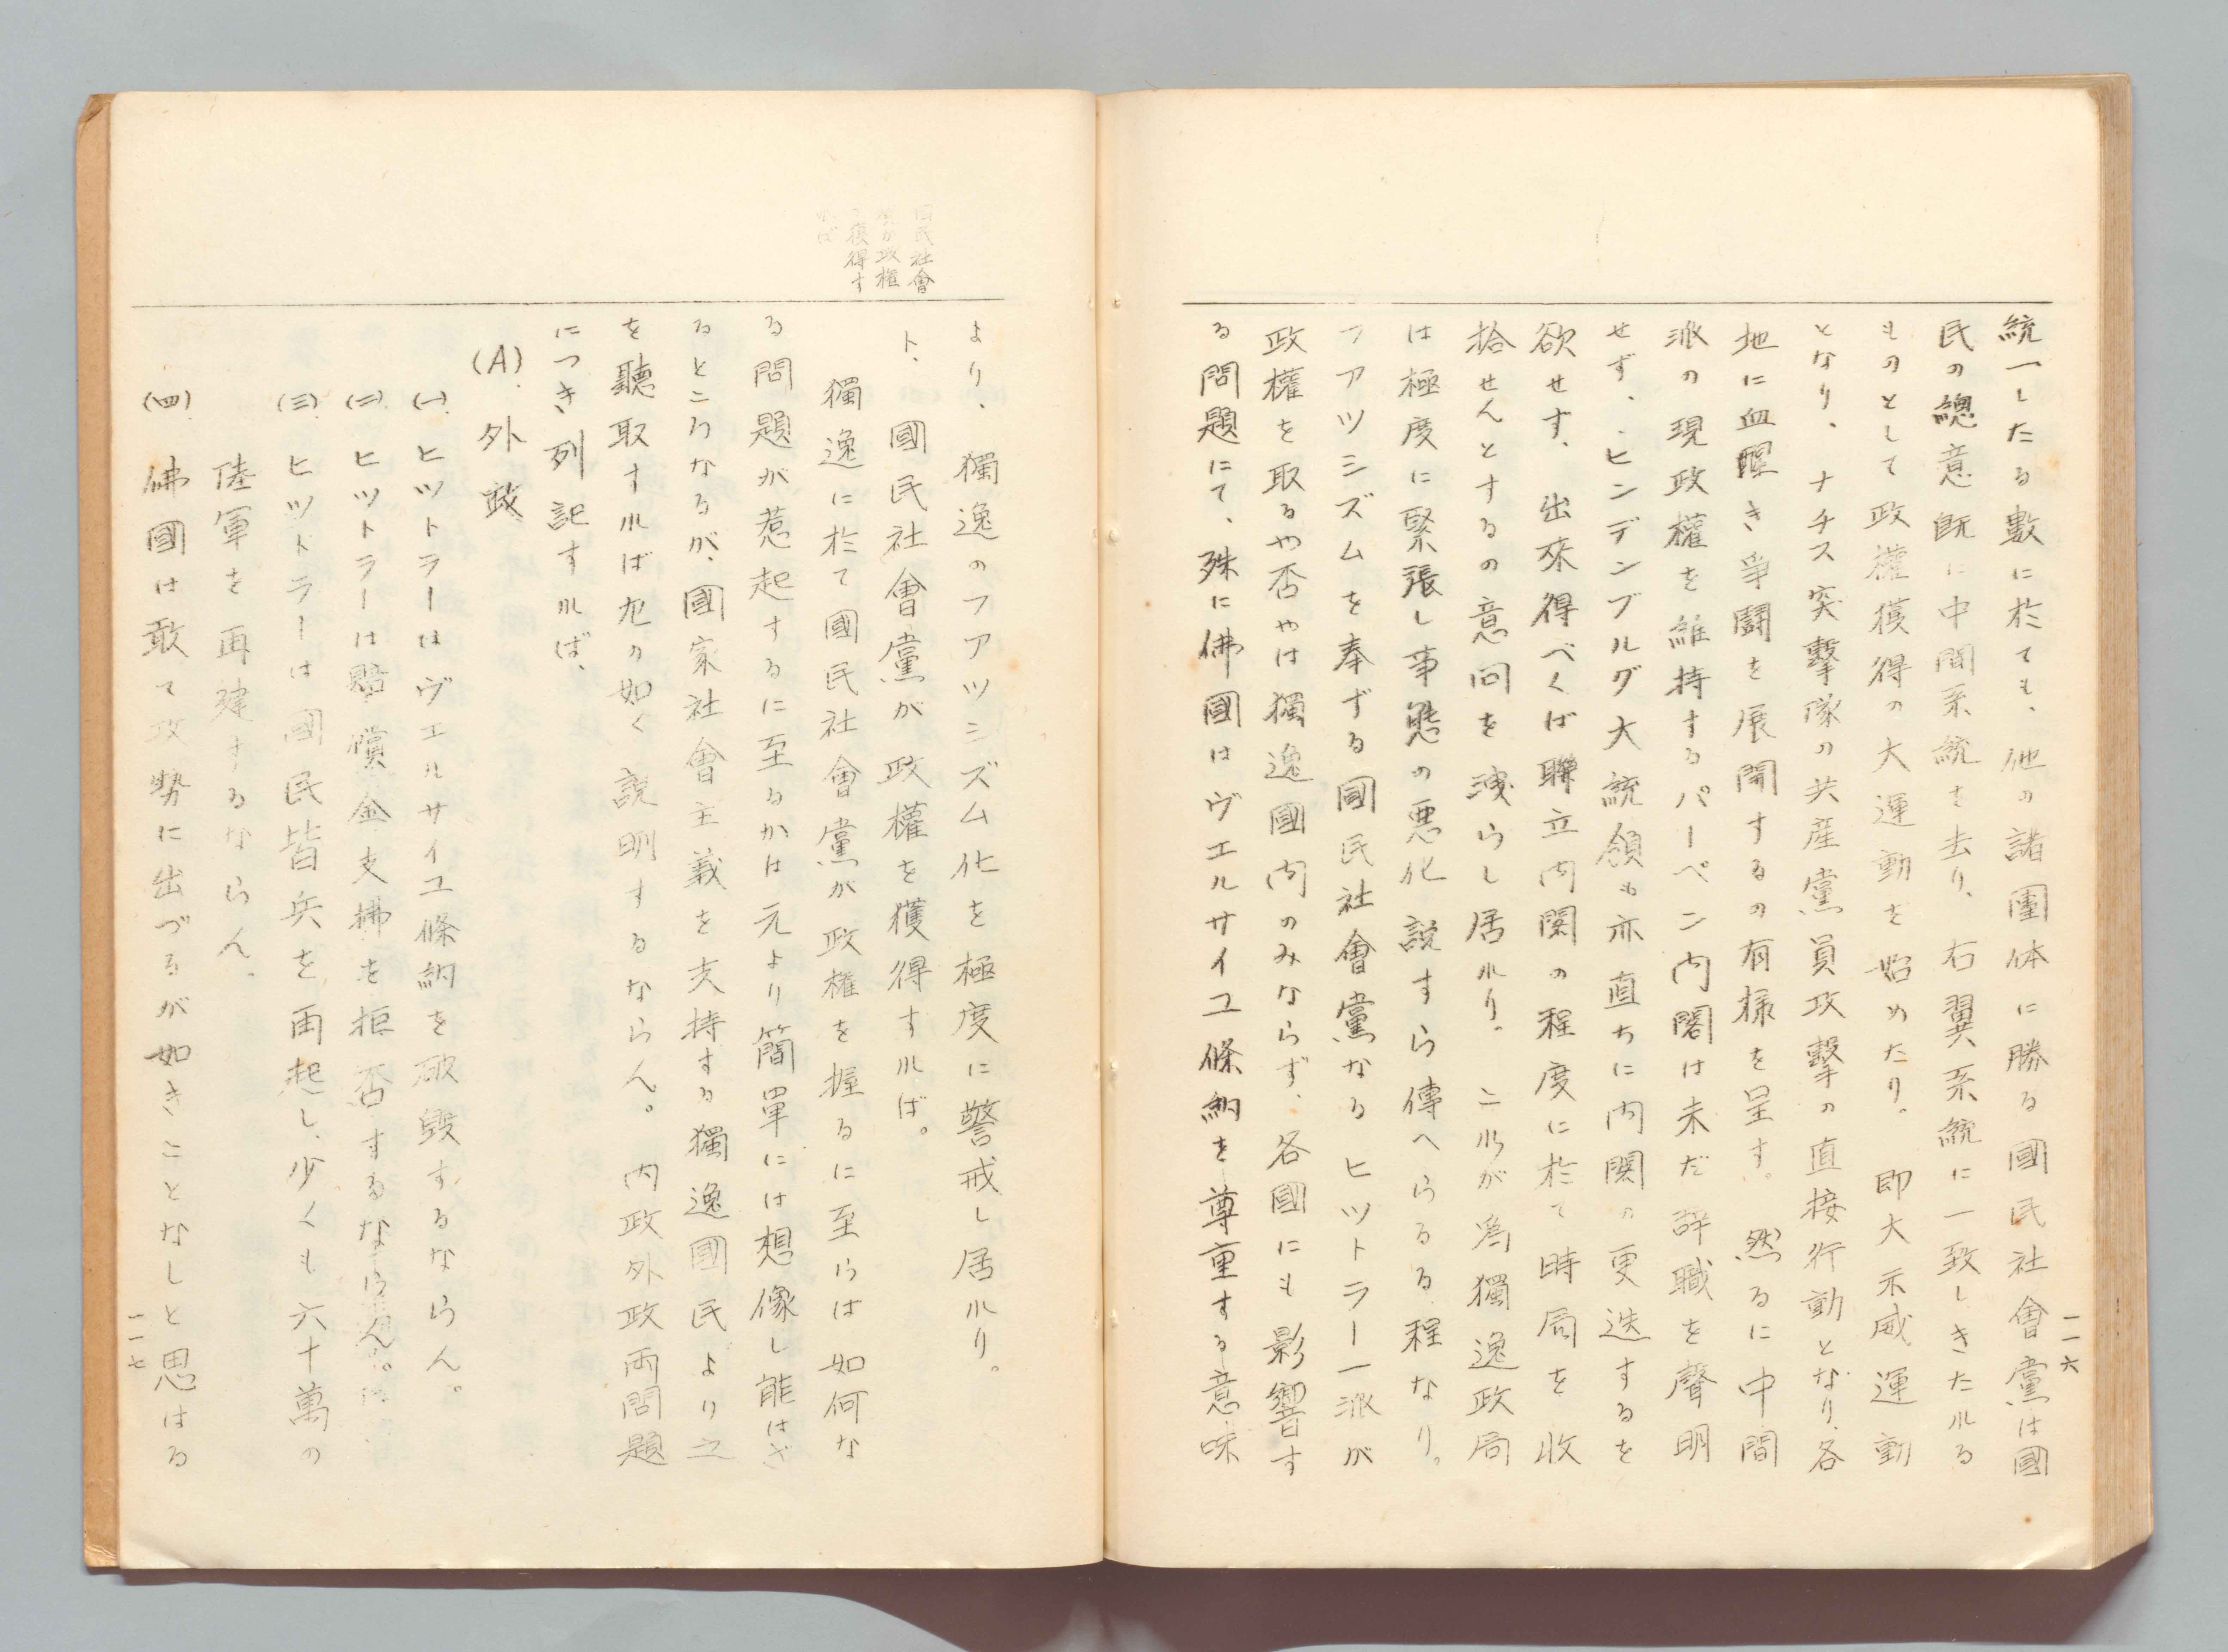 統一したる數に於ても、他の諸團体に勝る國民社會黨は國
民の總意既に中間系統を去り、右翼系統に一致しきたれる
ものとして政權獲得の大運動を始めたり。即大示威運動
となり、ナチス突擊隊の共産黨員攻擊の直接行動となり、各
地に血腥き爭闘を展開するの有様を呈す。然るに中間
派の現政權を維持するパーペン内閣は未だ辞職を聲明
せず、ヒンデンブルグ大統領も亦直ちに内閣の更迭するを
欲せず、出來得べくば聯立内閣の程度に於て時局を收
拾せんとするの意向を洩らし居れり。これが爲獨逸政局
は極度に緊張し事態の悪化説すら傳へらるる程なり。
フアツシズムを奉ずる國民社會黨なるヒツトラー一派が
政權を取るや否やは獨逸國内のみならず、各國にも影響す
る問題にて、殊に佛國はヴエルサイユ條約を尊重する意味
一一六
國民社會
黨が政權
を獲得す
れば
より、獨逸のフアツシズム化を極度に警戒し居れり。
ト、國民社會黨が政權を獲得すれば。
獨逸に於て國民社會黨が政權を握るに至らは如何な
る問題が惹起するに至るかは元より簡單には想像し能はざ
るところなるが、國家社會主義を支持する獨逸國民より之
を聽取すれば左の如く説明するならん。内政外政両問題
につき列記すれば、
(A). 外政
(一). ヒツトラーはヴエルサイユ條約を破毀するならん。
(二). ヒツトラーは賠償金支拂を拒否するならん。
(三). ヒツトラーは國民皆兵を再起し、少くも六十萬の
陸軍を再建するならん。
(四). 佛國は敢て攻勢に出づるが如きことなしと思はる
一一七